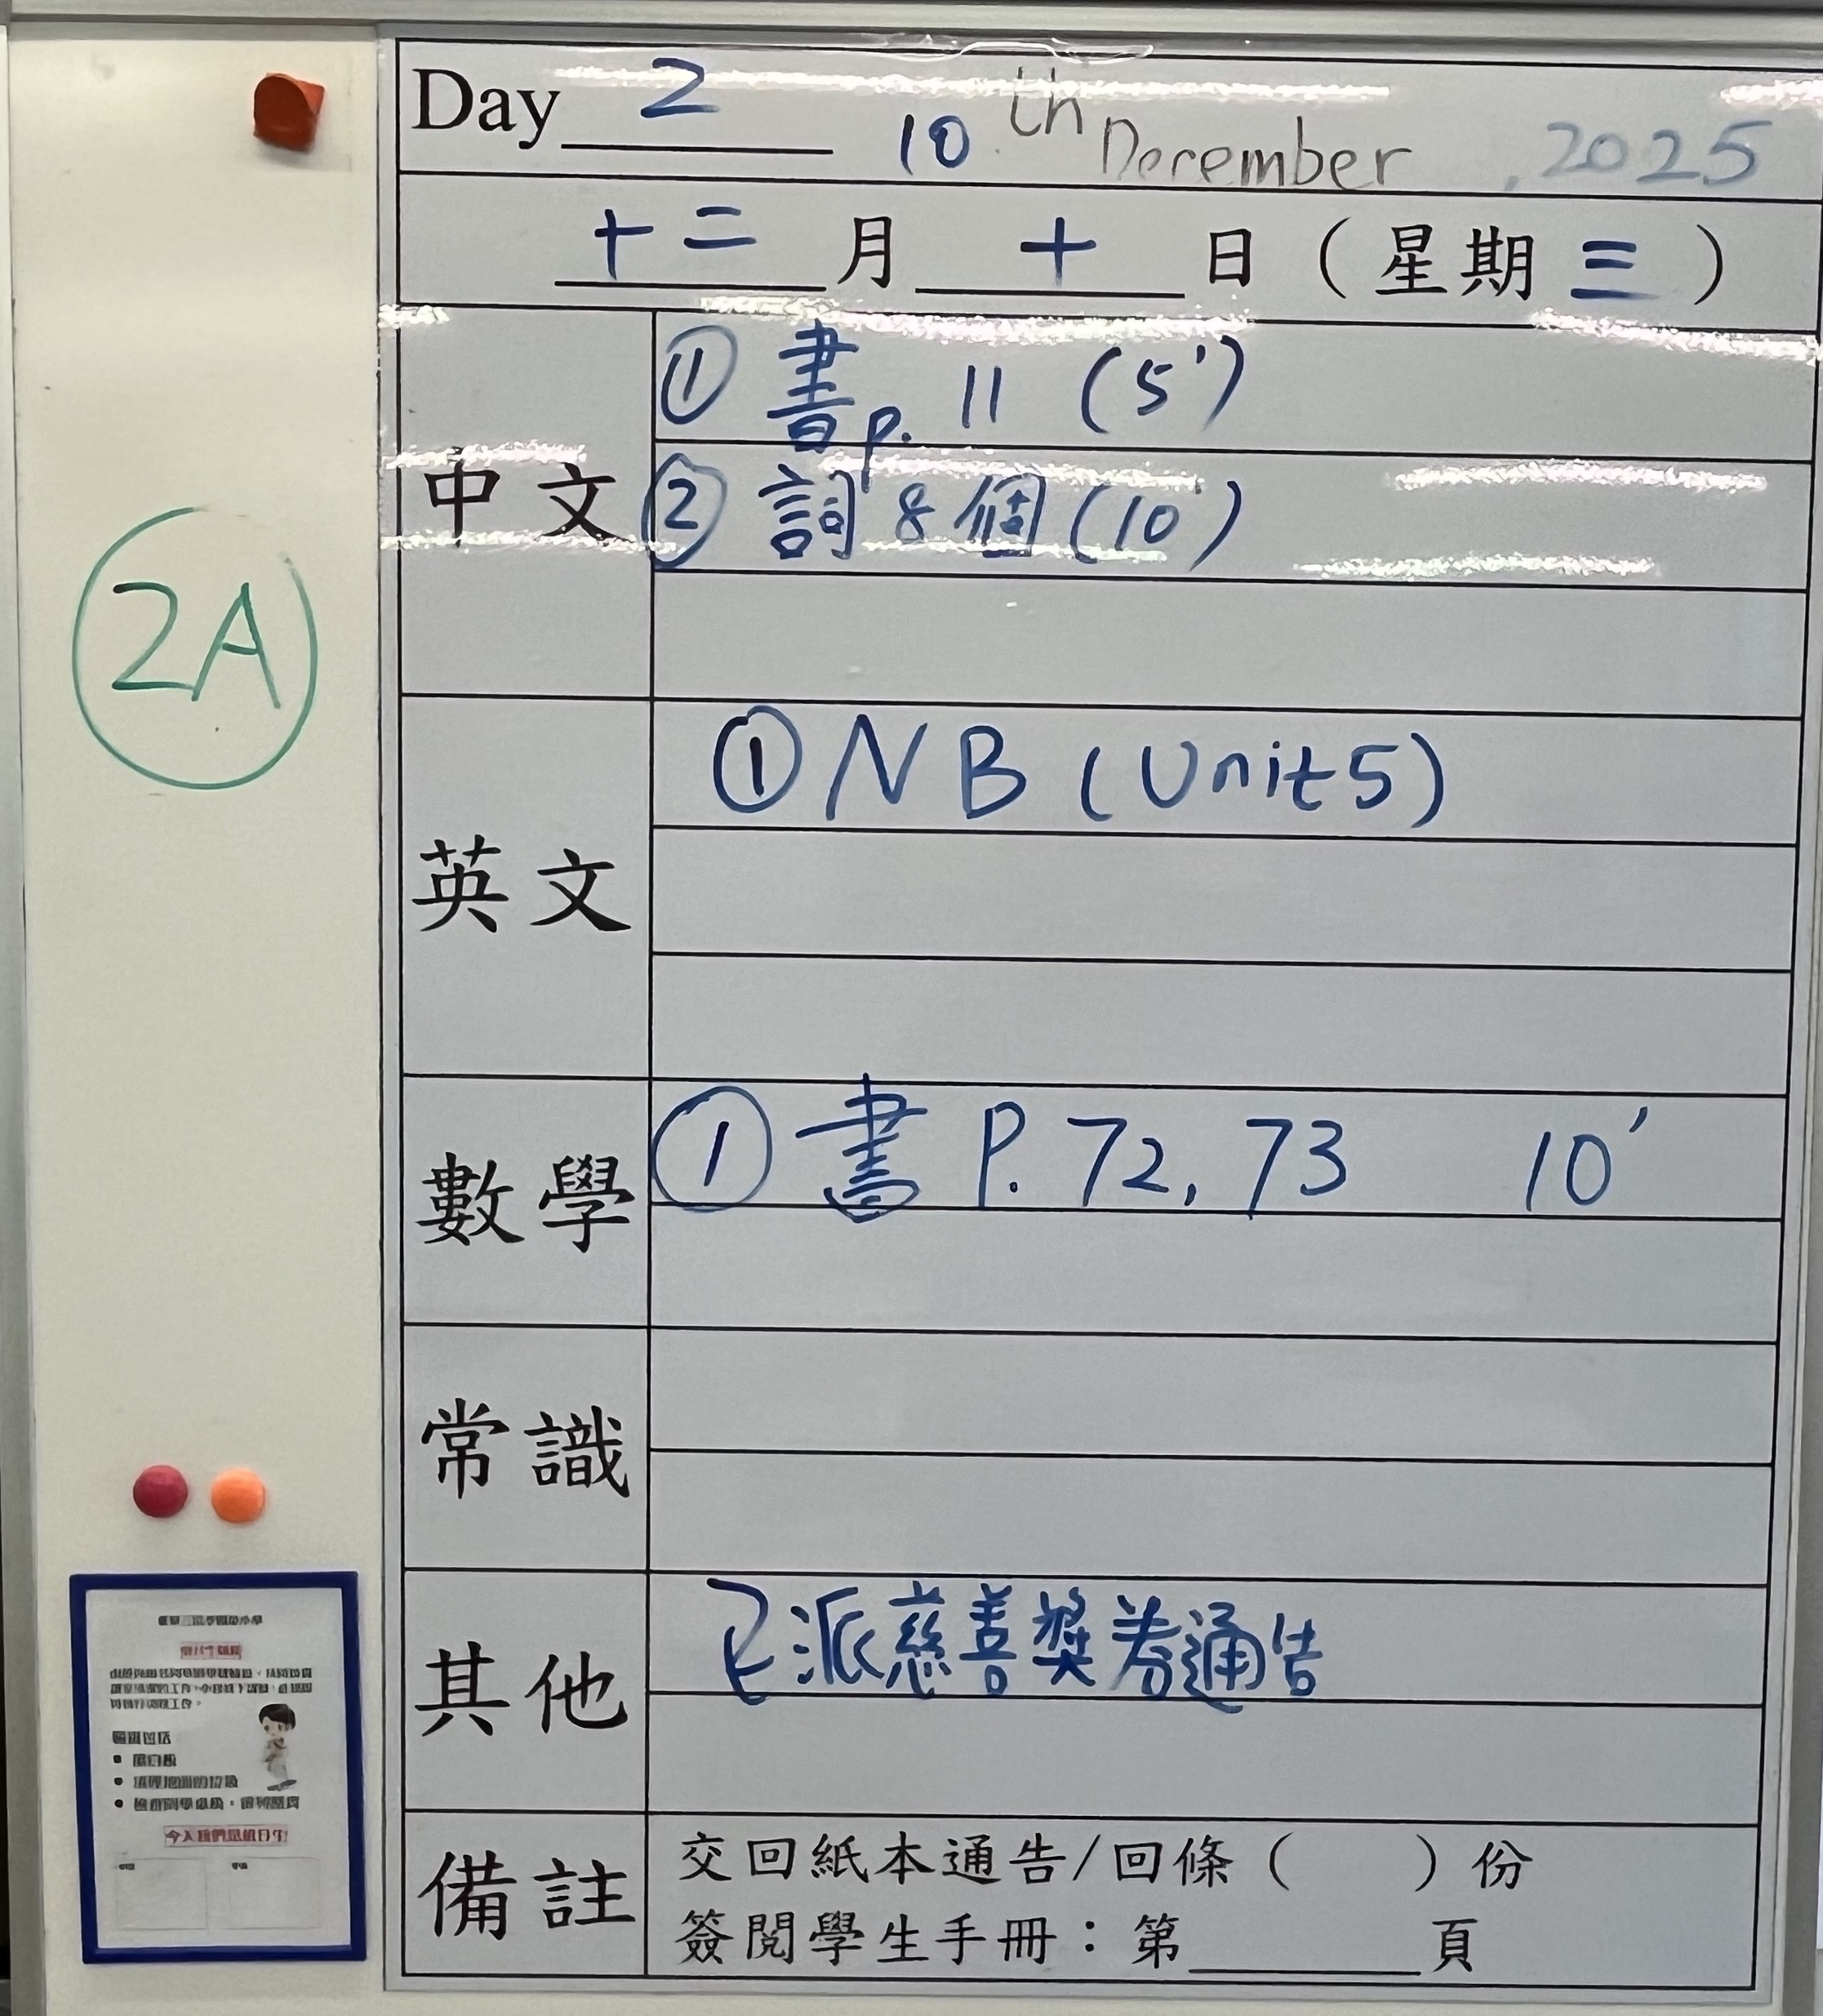 Day 2 10th December, 2025
十二月十日（星期三）
中文
① 書p. 11 (5')
② 詞8個(10')
2A
英文
① NB (Unit 5)
數學
① 書 P. 72, 73 10'
常識
其他
已派慈善獎券通告
備註
交回紙本通告/回條（ ）份
簽閱學生手冊：第____頁